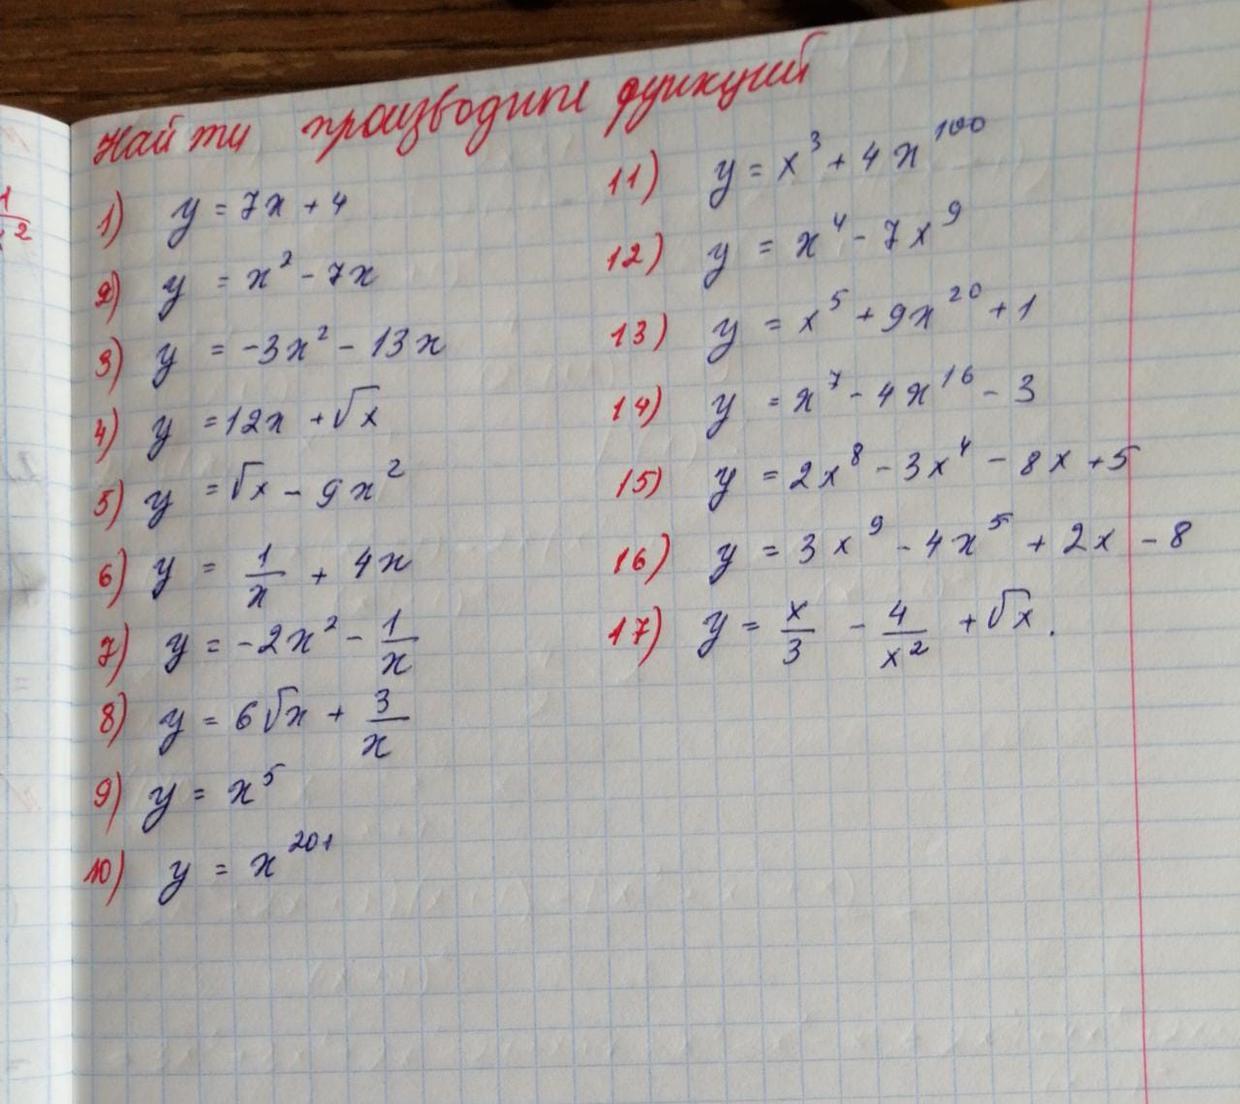 Найти производные функций
1) y = 7x + 4
2) y = x² - 7x
3) y = -3x² - 13x
4) y = 12x + √x
5) y = √x - 9x²
6) y = 1/x + 4x
7) y = -2x² - 1/x
8) y = 6√x + 3/x
9) y = x⁵
10) y = x²⁰¹
11) y = x³ + 4x¹⁰⁰
12) y = x⁴ - 7x⁹
13) y = x⁵ + 9x²⁰ + 1
14) y = x⁷ - 4x¹⁶ - 3
15) y = 2x⁸ - 3x⁴ - 8x + 5
16) y = 3x⁹ - 4x⁵ + 2x - 8
17) y = x/3 - 4/x² + √x.